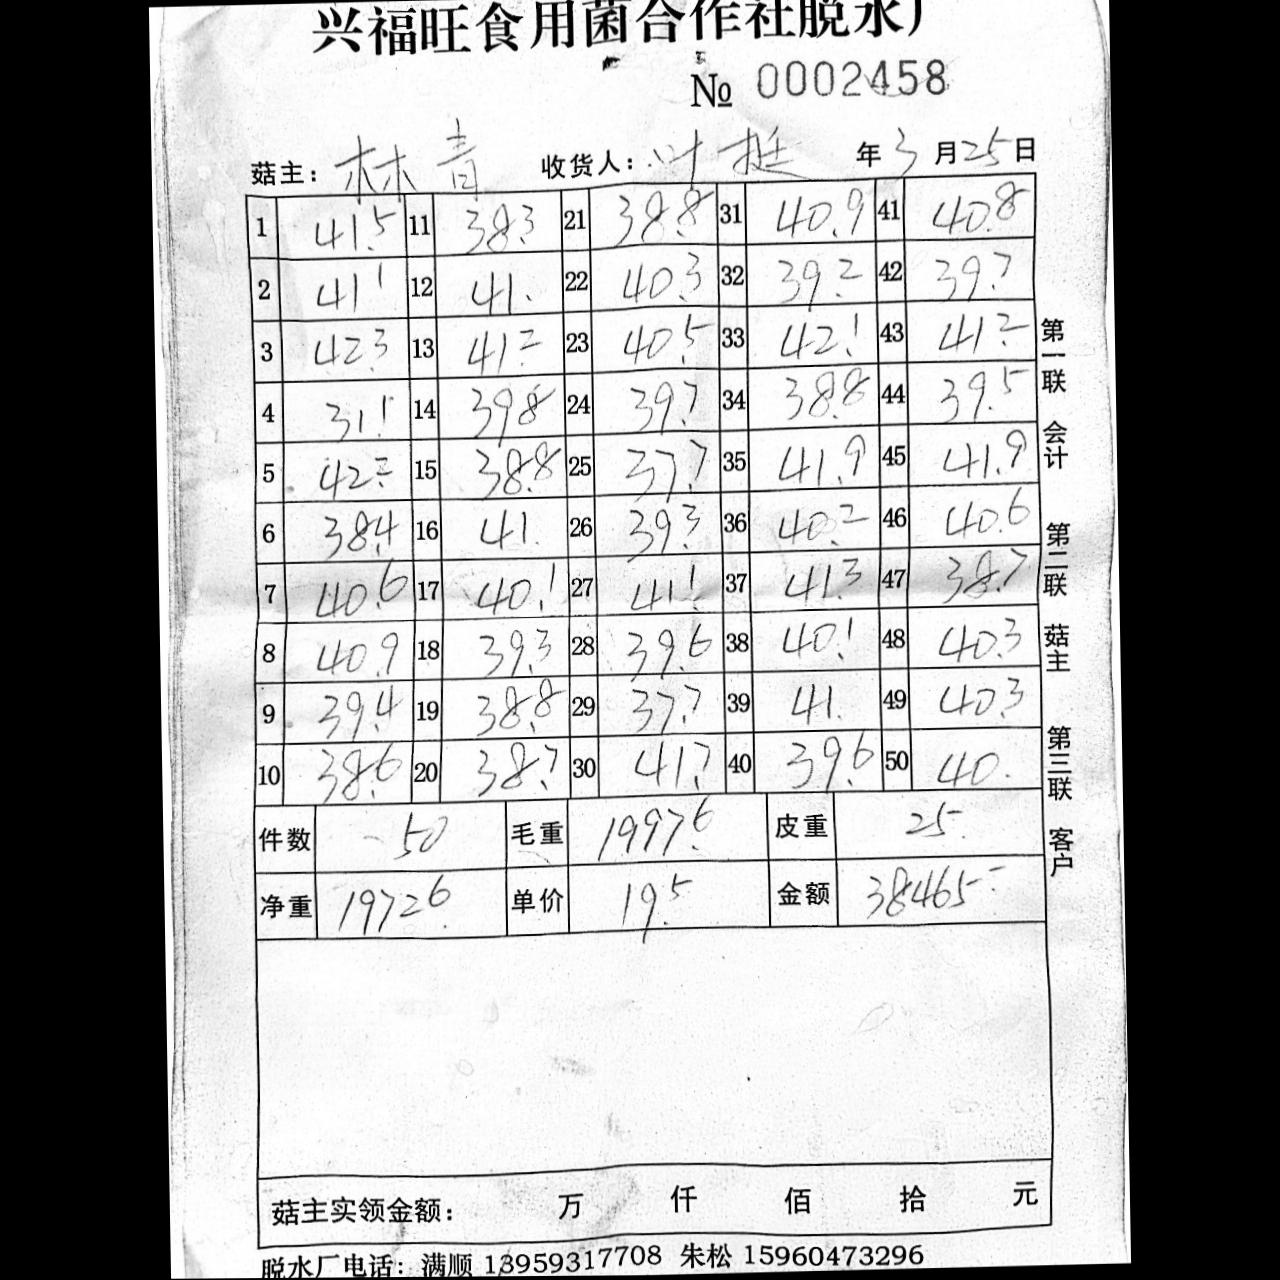 兴福旺食用菌合作社脱水厂
№ 0002458
菇主: 林青 收货人: 叶挺 年 3 月 25 日
1 41.5 11 38.3 21 38.8 31 40.9 41 40.8
2 41.1 12 41. 22 40.3 32 39.2 42 39.7
3 42.3 13 41.2 23 40.5 33 42.1 43 41.2
4 31.1 14 39.8 24 39.7 34 38.8 44 39.5
5 42.2 15 38.8 25 37.7 35 41.9 45 41.9
6 38.4 16 41. 26 39.3 36 40.2 46 40.6
7 40.6 17 40.1 27 41.1 37 41.3 47 38.7
8 40.9 18 39.3 28 39.6 38 40.1 48 40.3
9 39.4 19 38.8 29 37.7 39 41. 49 40.3
10 38.6 20 38.7 30 41.7 40 39.6 50 40.
件数 50 毛重 1997.6 皮重 25.
净重 1972.6 单价 19.5 金额 38465
菇主实领金额: 万 仟 佰 拾 元
脱水厂电话: 满顺 13959317708 朱松 15960473296
第一联 会计 第二联 菇主 第三联 客户